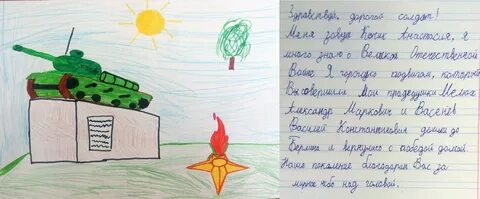 Здравствуй, дорогой солдат!
Меня зовут Кочик Анастасия, я
много знаю о Великой Отечественной
Войне. Я горжусь подвигом, который
Вы совершили. Мои прадедушки Мелких
Александр Маркович и Васенёв
Василий Константинович дошли до
Берлина и вернулись с победой домой.
Наше поколение благодарит Вас за
мирное небо над головой.